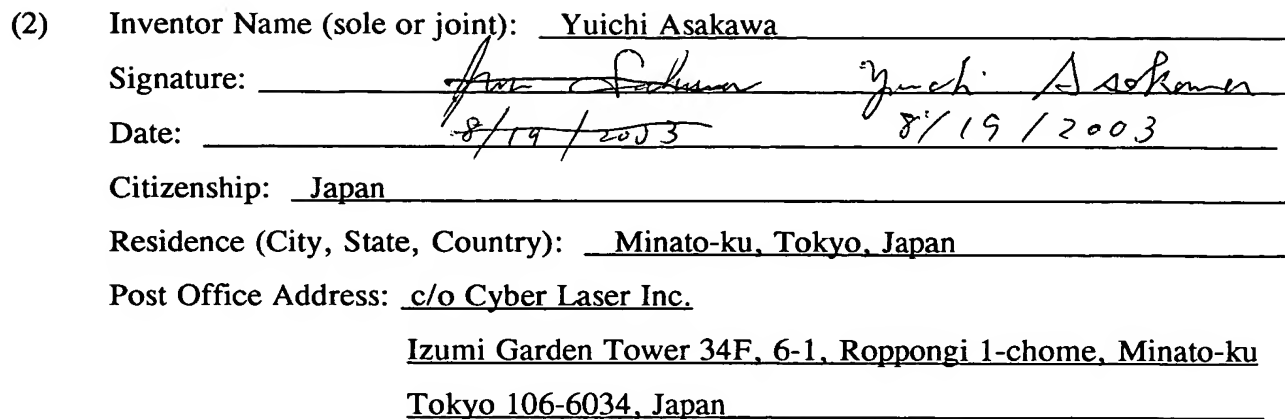 (2) Inventor Name (sole or joint): Yuichi Asakawa
Signature: Yuichi Asakawa
Date: 8/19/2003 8/19/2003
Citizenship: Japan
Residence (City, State, Country): Minato-ku, Tokyo, Japan
Post Office Address: c/o Cyber Laser Inc.
Izumi Garden Tower 34F, 6-1, Roppongi 1-chome, Minato-ku
Tokyo 106-6034, Japan